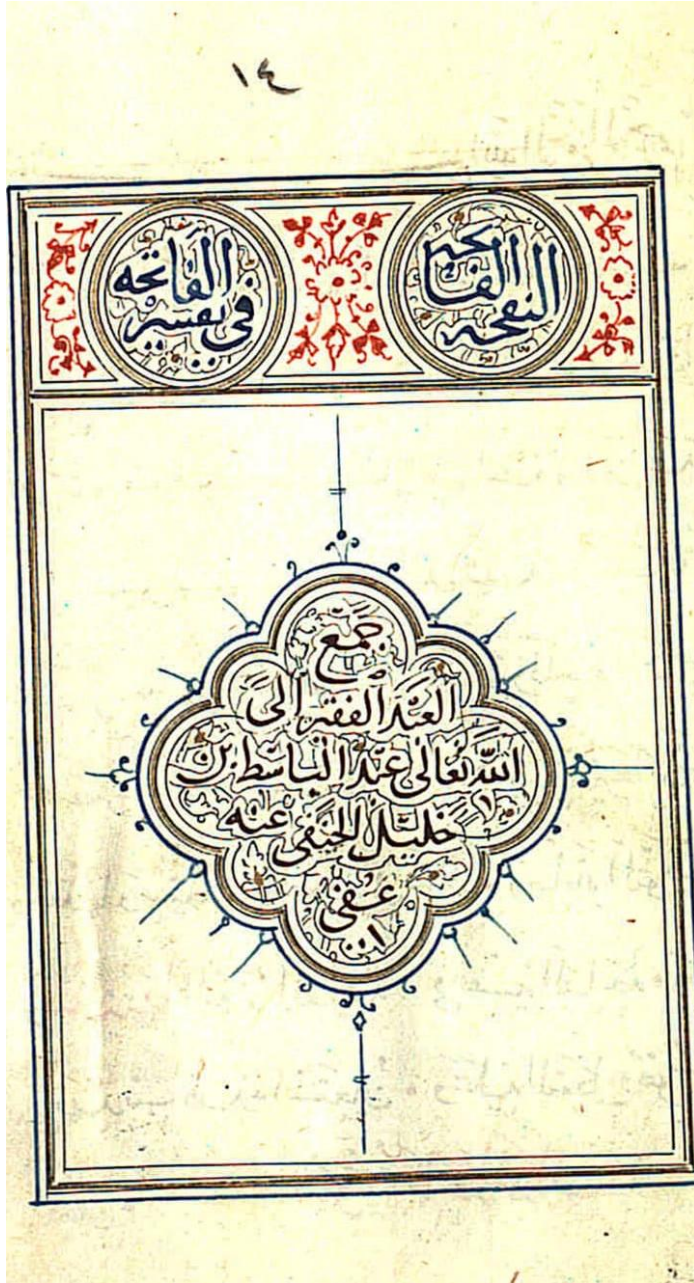 ١٤
النفحة الفائحة
في تفسير الفاتحة
جمع
العبد الفقير الى
الله تعالى عبد الباسط بن
خليل الحنفي عنه
عفي